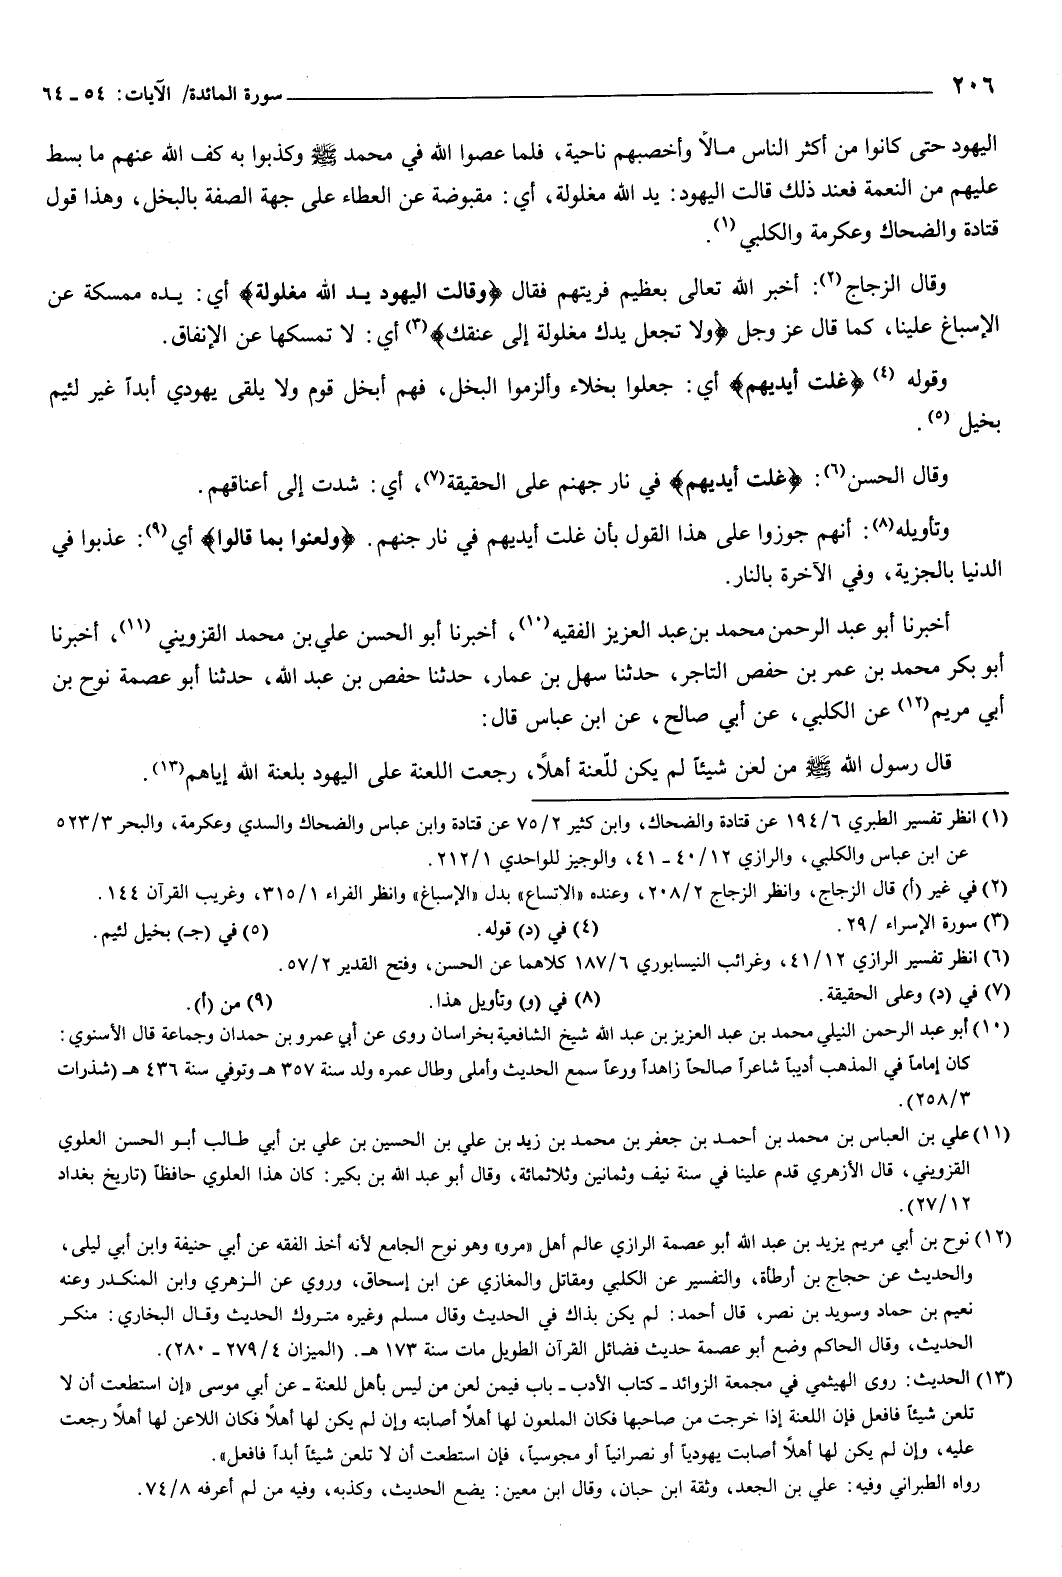 ٢٠٦ سورة المائدة/ الآيات: ٥٤ ـ ٦٤
اليهود حتى كانوا من أكثر الناس مالاً وأخصبهم ناحية، فلما عصوا الله في محمد ﷺ وكذبوا به كف الله عنهم ما بسط
عليهم من النعمة فعند ذلك قالت اليهود: يد الله مغلولة، أي: مقبوضة عن العطاء على جهة الصفة بالبخل، وهذا قول
قتادة والضحاك وعكرمة والكلبي(١).
وقال الزجاج(٢): أخبر الله تعالى بعظيم فريتهم فقال ﴿وقالت اليهود يد الله مغلولة﴾ أي: يده ممسكة عن
الإسباغ علينا، كما قال عز وجل ﴿ولا تجعل يدك مغلولة إلى عنقك﴾(٣) أي: لا تمسكها عن الإنفاق.
وقوله (٤) ﴿غلت أيديهم﴾ أي: جعلوا بخلاء وألزموا البخل، فهم أبخل قوم ولا يلقى يهودي أبداً غير لئيم
بخيل (٥).
وقال الحسن(٦): ﴿غلت أيديهم﴾ في نار جهنم على الحقيقة(٧)، أي: شدت إلى أعناقهم.
وتأويله(٨): أنهم جوزوا على هذا القول بأن غلت أيديهم في نار جنهم. ﴿ولعنوا بما قالوا﴾ أي(٩): عذبوا في
الدنيا بالجزية، وفي الآخرة بالنار.
أخبرنا أبو عبد الرحمن محمد بن عبد العزيز الفقيه(١٠)، أخبرنا أبو الحسن علي بن محمد القزويني (١١)، أخبرنا
أبو بكر محمد بن عمر بن حفص التاجر، حدثنا سهل بن عمار، حدثنا حفص بن عبد الله، حدثنا أبو عصمة نوح بن
أبي مريم(١٢) عن الكلبي، عن أبي صالح، عن ابن عباس قال:
قال رسول الله ﷺ من لعن شيئاً لم يكن للّعنة أهلاً، رجعت اللعنة على اليهود بلعنة الله إياهم(١٣).
(١) انظر تفسير الطبري ١٩٤/٦ عن قتادة والضحاك، وابن كثير ٧٥/٢ عن قتادة وابن عباس والضحاك والسدي وعكرمة، والبحر ٥٢٣/٣
عن ابن عباس والكلبي، والرازي ٤٠/١٢ ـ ٤١، والوجيز للواحدي ٢١٢/١.
(٢) في غير (أ) قال الزجاج، وانظر الزجاج ٢٠٨/٢، وعنده «الاتساع» بدل «الإسباغ» وانظر الفراء ٣١٥/١، وغريب القرآن ١٤٤.
(٣) سورة الإسراء /٢٩. (٤) في (د) قوله. (٥) في (جـ) بخيل لئيم.
(٦) انظر تفسير الرازي ٤١/١٢، وغرائب النيسابوري ١٨٧/٦ كلاهما عن الحسن، وفتح القدير ٥٧/٢.
(٧) في (د) وعلى الحقيقة. (٨) في (و) وتأويل هذا. (٩) من (أ).
(١٠) أبو عبد الرحمن النيلي محمد بن عبد العزيز بن عبد الله شيخ الشافعية بخراسان روى عن أبي عمرو بن حمدان وجماعة قال الأسنوي:
كان إماماً في المذهب أديباً شاعراً صالحاً زاهداً ورعاً سمع الحديث وأملى وطال عمره ولد سنة ٣٥٧ هـ وتوفي سنة ٤٣٦ هـ (شذرات
٢٥٨/٣).
(١١) علي بن العباس بن محمد بن أحمد بن جعفر بن محمد بن زيد بن علي بن الحسين بن علي بن أبي طالب أبو الحسن العلوي
القزويني، قال الأزهري قدم علينا في سنة نيف وثمانين وثلاثمائة، وقال أبو عبد الله بن بكير: كان هذا العلوي حافظاً (تاريخ بغداد
٢٧/١٢).
(١٢) نوح بن أبي مريم يزيد بن عبد الله أبو عصمة الرازي عالم أهل «مرو» وهو نوح الجامع لأنه أخذ الفقه عن أبي حنيفة وابن أبي ليلى،
والحديث عن حجاج بن أرطأة، والتفسير عن الكلبي ومقاتل والمغازي عن ابن إسحاق، وروي عن الزهري وابن المنكدر وعنه
نعيم بن حماد وسويد بن نصر، قال أحمد: لم يكن بذاك في الحديث وقال مسلم وغيره متروك الحديث وقال البخاري: منكر
الحديث، وقال الحاكم وضع أبو عصمة حديث فضائل القرآن الطويل مات سنة ١٧٣ هـ. (الميزان ٢٧٩/٤ ـ ٢٨٠).
(١٣) الحديث: روى الهيثمي في مجمعة الزوائد ـ كتاب الأدب ـ باب فيمن لعن من ليس بأهل للعنة ـ عن أبي موسى «إن استطعت أن لا
تلعن شيئاً فافعل فإن اللعنة إذا خرجت من صاحبها فكان الملعون لها أهلاً أصابته وإن لم يكن لها أهلاً فكان اللاعن لها أهلاً رجعت
عليه، وإن لم يكن لها أهلاً أصابت يهودياً أو نصرانياً أو مجوسياً، فإن استطعت أن لا تلعن شيئاً أبداً فافعل».
رواه الطبراني وفيه: علي بن الجعد، وثقة ابن حبان، وقال ابن معين: يضع الحديث، وكذبه، وفيه من لم أعرفه ٧٤/٨.